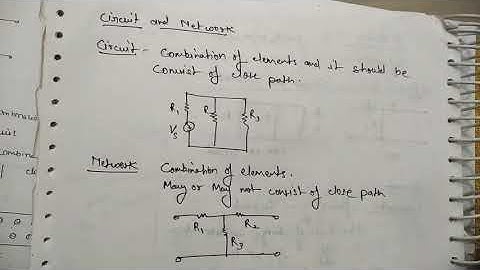 Circuit and Network
Circuit - Combination of elements and it should be
Consist of close path.
R1 R R3
Vs
Network Combination of elements.
May or May not consist of close path
R1 R2
R3